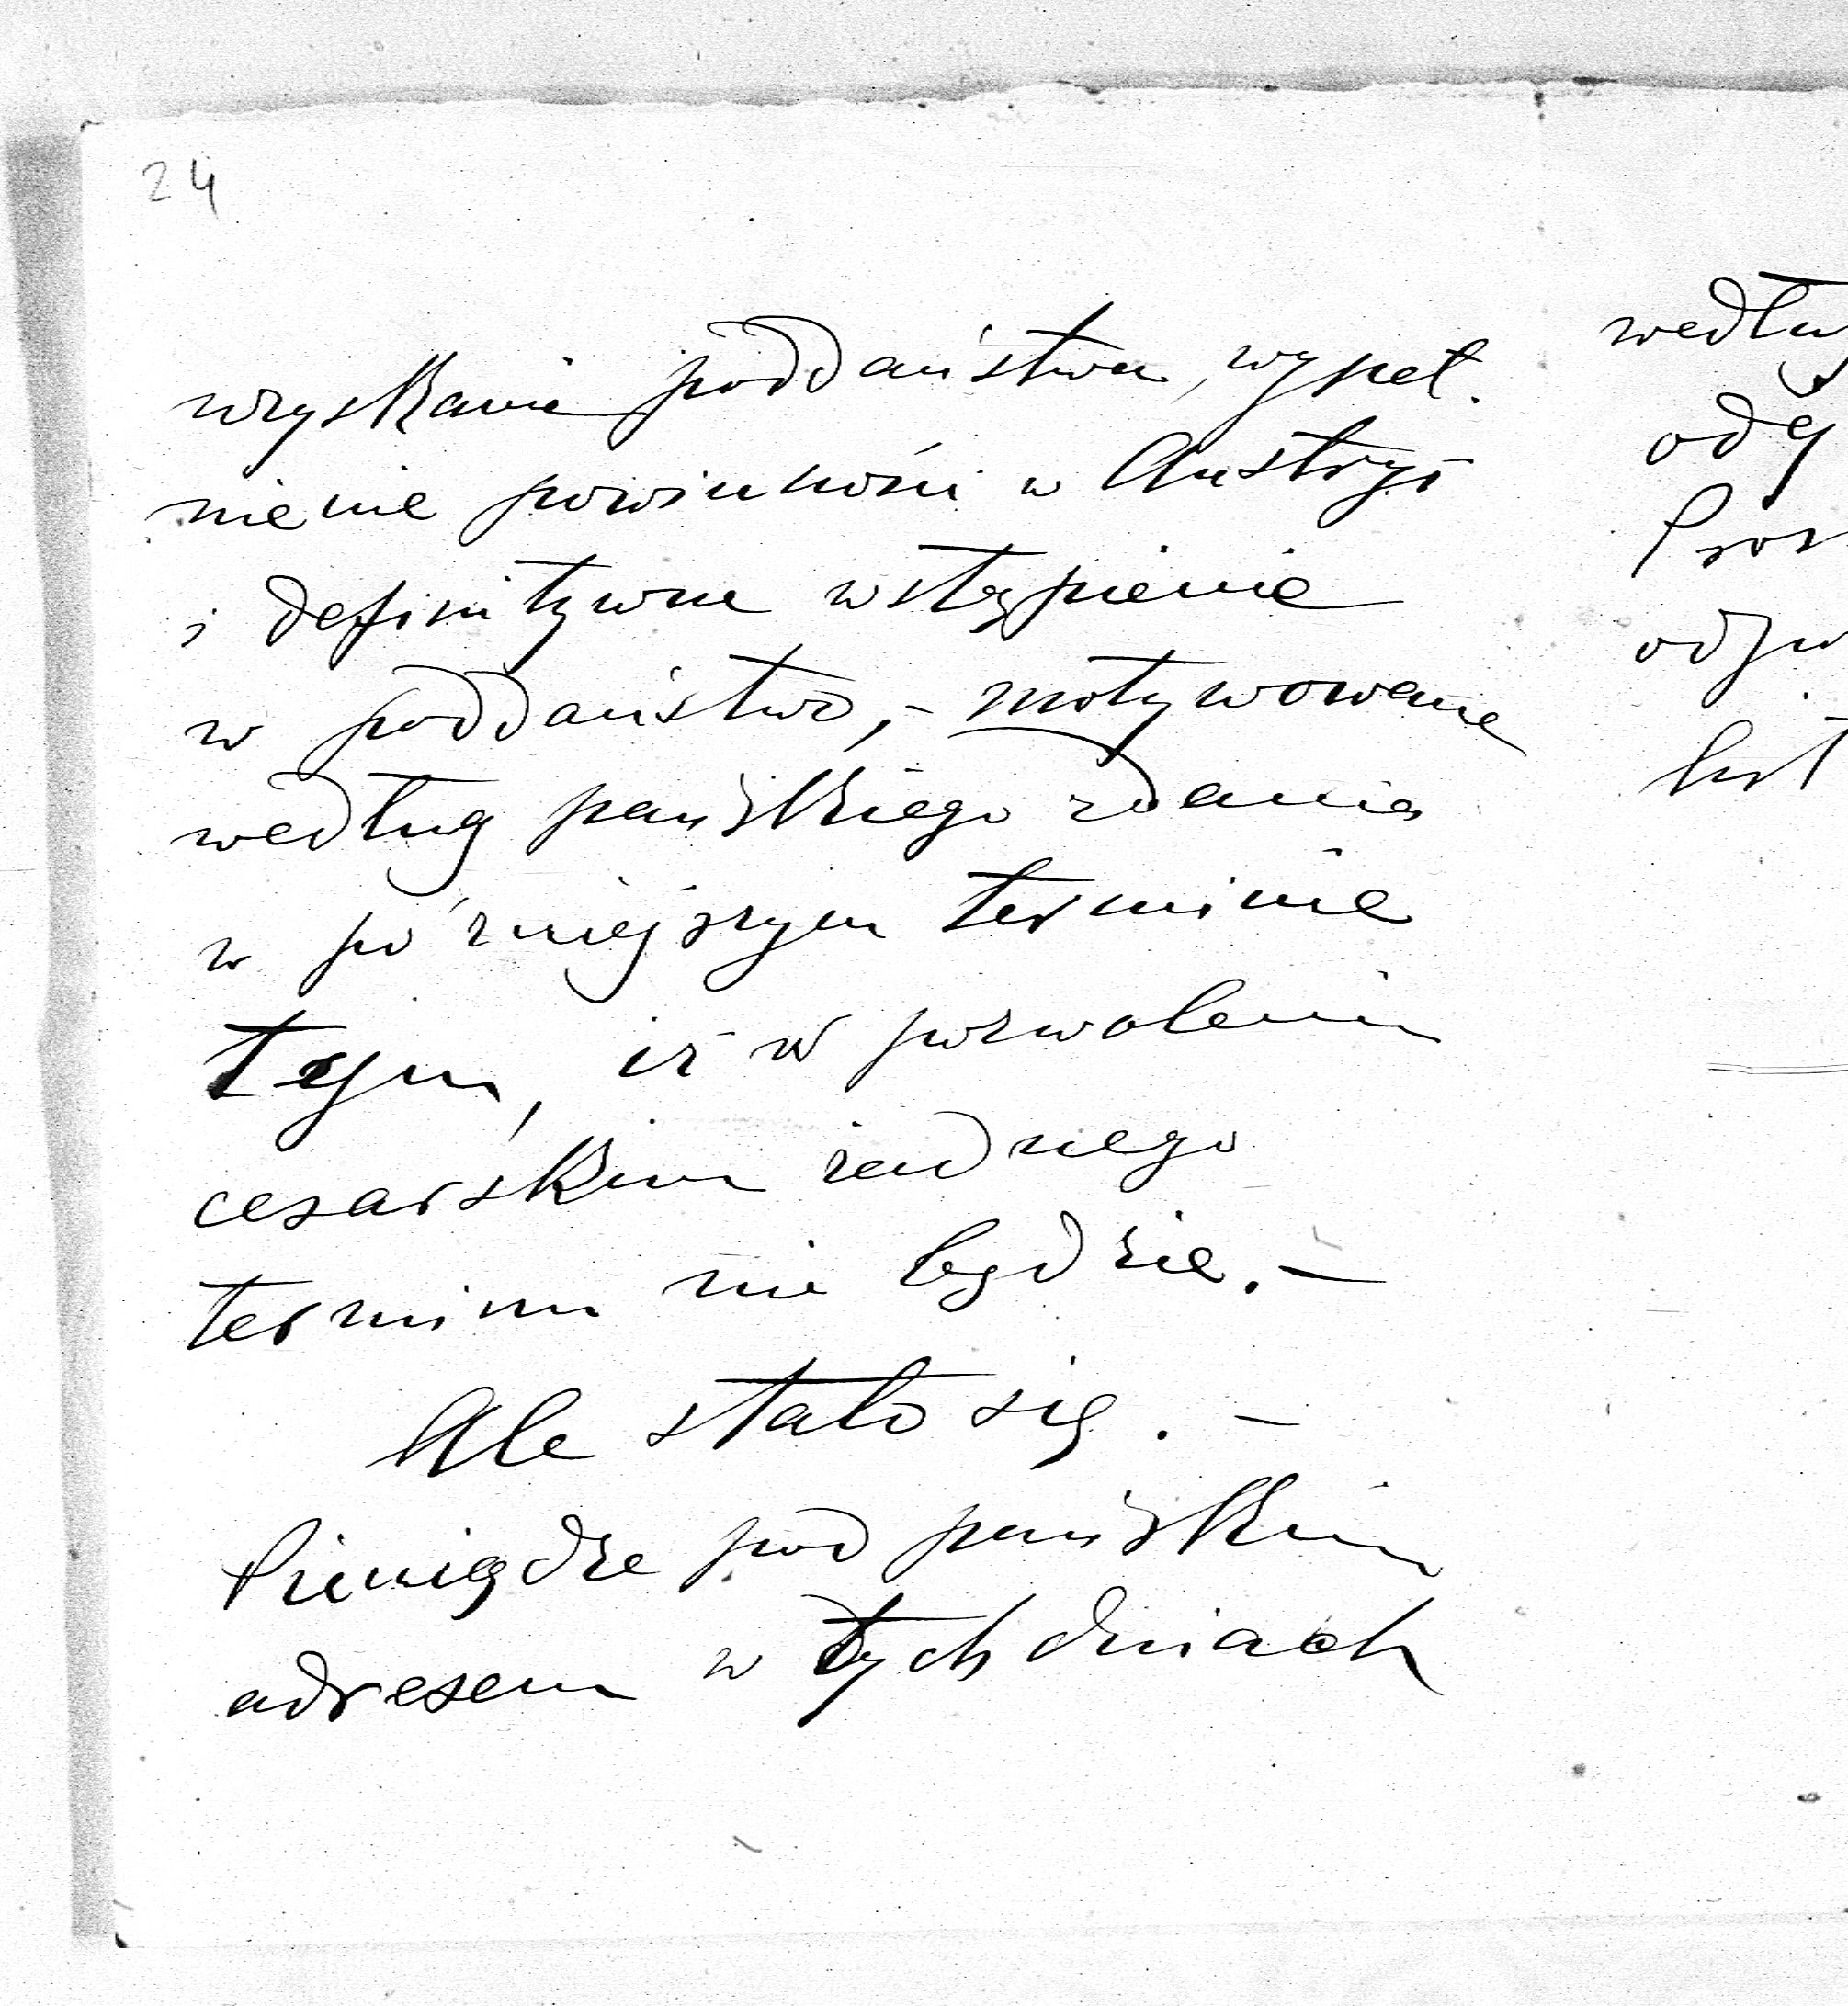 24
uzyskanie poddaństwa, wypeł.
nienie powinności w Austryi
i definitywne wstąpienie
w poddaństwo, - motywowane
według pańskiego zdania
w późniejszym terminie
tem, iż w pozwoleniu
cesarskim żadnego
terminu nie będzie. -
Ale stało się. -
Pieniądze pod pańskim
adresem w tych dniach
według
odę
Pros
odjw
list